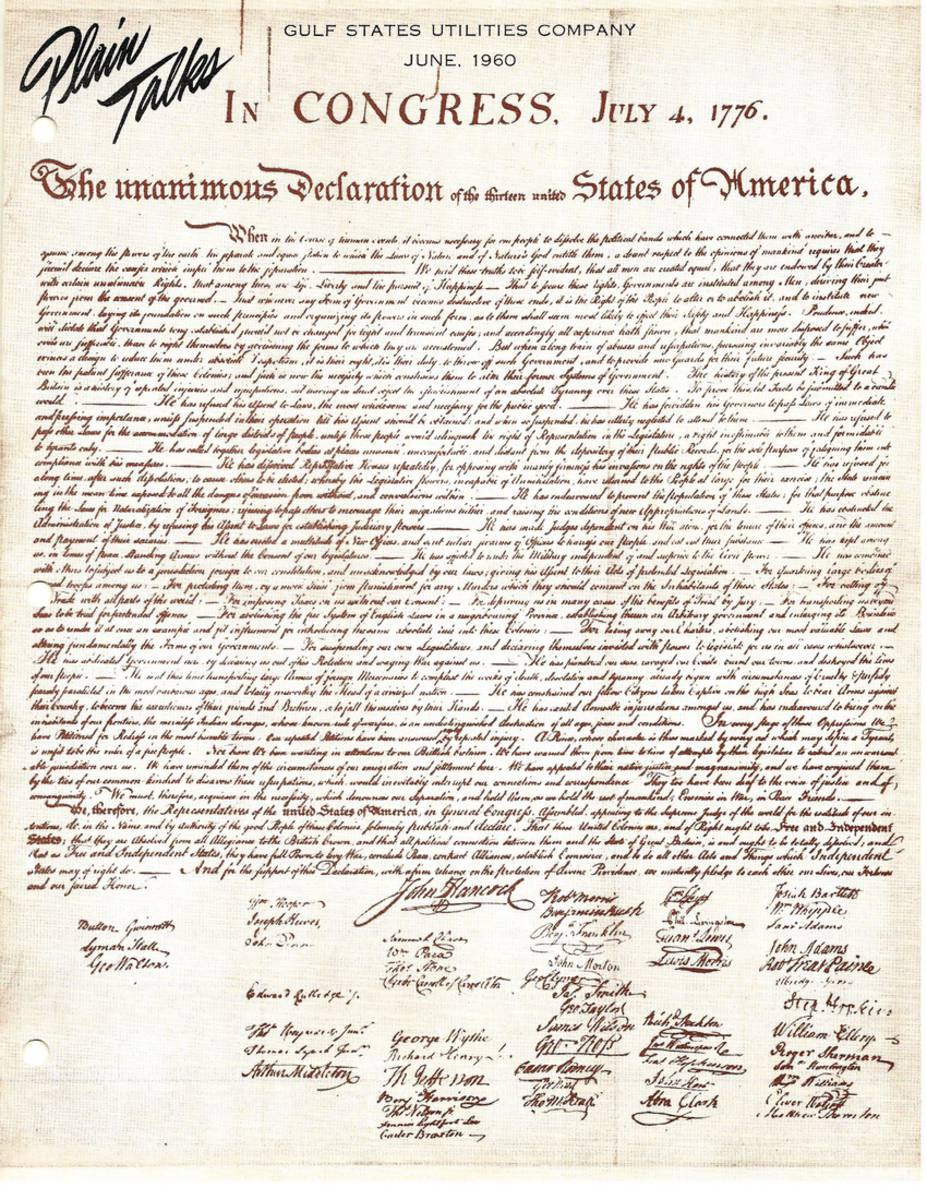 Plain Talks
GULF STATES UTILITIES COMPANY
JUNE, 1960
IN CONGRESS, JULY 4, 1776.
The unanimous Declaration of the thirteen united States of America,
When in the Course of human events, it becomes necessary for one people to dissolve the political bands which have connected them with another, and to
assume among the powers of the earth, the separate and equal station to which the Laws of Nature and of Nature's God entitle them, a decent respect to the opinions of mankind requires that they
should declare the causes which impel them to the separation. — We hold these truths to be self-evident, that all men are created equal, that they are endowed by their Creator
with certain unalienable Rights, that among these are Life, Liberty and the pursuit of Happiness. — That to secure these rights, Governments are instituted among Men, deriving their just
powers from the consent of the governed, — That whenever any Form of Government becomes destructive of these ends, it is the Right of the People to alter or to abolish it, and to institute new
Government, laying its foundation on such principles and organizing its powers in such form, as to them shall seem most likely to effect their Safety and Happiness. Prudence, indeed,
will dictate that Governments long established should not be changed for light and transient causes; and accordingly all experience hath shewn, that mankind are more disposed to suffer, while
evils are sufferable, than to right themselves by abolishing the forms to which they are accustomed. But when a long train of abuses and usurpations, pursuing invariably the same Object
evinces a design to reduce them under absolute Despotism, it is their right, it is their duty, to throw off such Government, and to provide new Guards for their future security. — Such has
been the patient sufferance of these Colonies; and such is now the necessity which constrains them to alter their former Systems of Government. The history of the present King of Great
Britain is a history of repeated injuries and usurpations, all having in direct object the establishment of an absolute Tyranny over these States. To prove this, let Facts be submitted to a candid
world. — He has refused his Assent to Laws, the most wholesome and necessary for the public good. — He has forbidden his Governors to pass Laws of immediate
and pressing importance, unless suspended in their operation till his Assent should be obtained; and when so suspended, he has utterly neglected to attend to them. — He has refused to
pass other Laws for the accommodation of large districts of people, unless those people would relinquish the right of Representation in the Legislature, a right inestimable to them and formidable
to tyrants only. — He has called together legislative bodies at places unusual, uncomfortable, and distant from the depository of their Public Records, for the sole purpose of fatiguing them into
compliance with his measures. — He has dissolved Representative Houses repeatedly, for opposing with manly firmness his invasions on the rights of the people. — He has refused for
a long time, after such dissolutions, to cause others to be elected; whereby the Legislative powers, incapable of Annihilation, have returned to the People at large for their exercise; the State remain
ing in the mean time exposed to all the dangers of invasion from without, and convulsions within. — He has endeavoured to prevent the population of these States; for that purpose obstruc
ting the Laws for Naturalization of Foreigners; refusing to pass others to encourage their migrations hither, and raising the conditions of new Appropriations of Lands. — He has obstructed the
Administration of Justice, by refusing his Assent to Laws for establishing Judiciary powers. — He has made Judges dependent on his Will alone, for the tenure of their offices, and the amount
and payment of their salaries. — He has erected a multitude of New Offices, and sent hither swarms of Officers to harrass our People, and eat out their substance. — He has kept among
us, in times of peace, Standing Armies without the Consent of our legislatures. — He has affected to render the Military independent of and superior to the Civil power. — He has combined
with others to subject us to a jurisdiction foreign to our constitution, and unacknowledged by our laws; giving his Assent to their Acts of pretended Legislation: — For quartering large bodies of
armed troops among us: — For protecting them, by a mock Trial, from punishment for any Murders which they should commit on the Inhabitants of these States: — For cutting off
our Trade with all parts of the world: — For imposing Taxes on us without our Consent: — For depriving us in many cases, of the benefits of Trial by Jury: — For transporting us beyond
Seas to be tried for pretended offences — For abolishing the free System of English Laws in a neighbouring Province, establishing therein an Arbitrary government, and enlarging its Boundaries
so as to render it at once an example and fit instrument for introducing the same absolute rule into these Colonies: — For taking away our Charters, abolishing our most valuable Laws, and
altering fundamentally the Forms of our Governments: — For suspending our own Legislatures, and declaring themselves invested with power to legislate for us in all cases whatsoever. —
He has abdicated Government here, by declaring us out of his Protection and waging War against us. — He has plundered our seas, ravaged our Coasts, burnt our towns, and destroyed the lives
of our people. — He is at this time transporting large Armies of foreign Mercenaries to compleat the works of death, desolation and tyranny, already begun with circumstances of Cruelty & perfidy
scarcely paralleled in the most barbarous ages, and totally unworthy the Head of a civilized nation. — He has constrained our fellow Citizens taken Captive on the high Seas to bear Arms against
their Country, to become the executioners of their friends and Brethren, or to fall themselves by their Hands. — He has excited domestic insurrections amongst us, and has endeavoured to bring on the
inhabitants of our frontiers, the merciless Indian Savages, whose known rule of warfare, is an undistinguished destruction of all ages, sexes and conditions. In every stage of these Oppressions We
have Petitioned for Redress in the most humble terms: Our repeated Petitions have been answered only by repeated injury. A Prince, whose character is thus marked by every act which may define a Tyrant,
is unfit to be the ruler of a free people. Nor have We been wanting in attentions to our Brittish brethren. We have warned them from time to time of attempts by their legislature to extend an unwarrant
able jurisdiction over us. We have reminded them of the circumstances of our emigration and settlement here. We have appealed to their native justice and magnanimity, and we have conjured them
by the ties of our common kindred to disavow these usurpations, which, would inevitably interrupt our connections and correspondence. They too have been deaf to the voice of justice and of
consanguinity. We must, therefore, acquiesce in the necessity, which denounces our Separation, and hold them, as we hold the rest of mankind, Enemies in War, in Peace Friends. —
We, therefore, the Representatives of the united States of America, in General Congress, Assembled, appealing to the Supreme Judge of the world for the rectitude of our in
tentions, do, in the Name, and by Authority of the good People of these Colonies, solemnly publish and declare, That these United Colonies are, and of Right ought to be Free and Independent
States; that they are Absolved from all Allegiance to the British Crown, and that all political connection between them and the State of Great Britain, is and ought to be totally dissolved; and
that as Free and Independent States, they have full Power to levy War, conclude Peace, contract Alliances, establish Commerce, and to do all other Acts and Things which Independent
States may of right do. — And for the support of this Declaration, with a firm reliance on the protection of divine Providence, we mutually pledge to each other our Lives, our Fortunes
and our sacred Honor.
John Hancock
Button Gwinnett
Lyman Hall
Geo Walton.
Wm Hooper
Joseph Hewes,
John Penn
Edward Rutledge Jr.
Thos Heyward Junr.
Thomas Lynch Junr.
Arthur Middleton
Samuel Chase
Wm Paca
Thos Stone
Charles Carroll of Carrollton
George Wythe
Richard Henry Lee
Th Jefferson
Benj Harrison
Thos Nelson jr.
Francis Lightfoot Lee
Carter Braxton
Robt Morris
Benjamin Rush
Benj. Franklin
John Morton
Geo Clymer
Jas. Smith
Geo. Taylor
James Wilson
Geo. Ross
Caesar Rodney
Geo Read
Tho M:Kean
Wm Floyd
Phil. Livingston
Frans. Lewis
Lewis Morris
Richd. Stockton
Jno Witherspoon
Fras. Hopkinson
John Hart
Abra Clark
Josiah Bartlett
Wm Whipple
Saml Adams
John Adams
Robt Treat Paine
Elbridge Gerry
Step. Hopkins
William Ellery
Roger Sherman
Saml Huntington
Wm Williams
Oliver Wolcott
Matthew Thornton